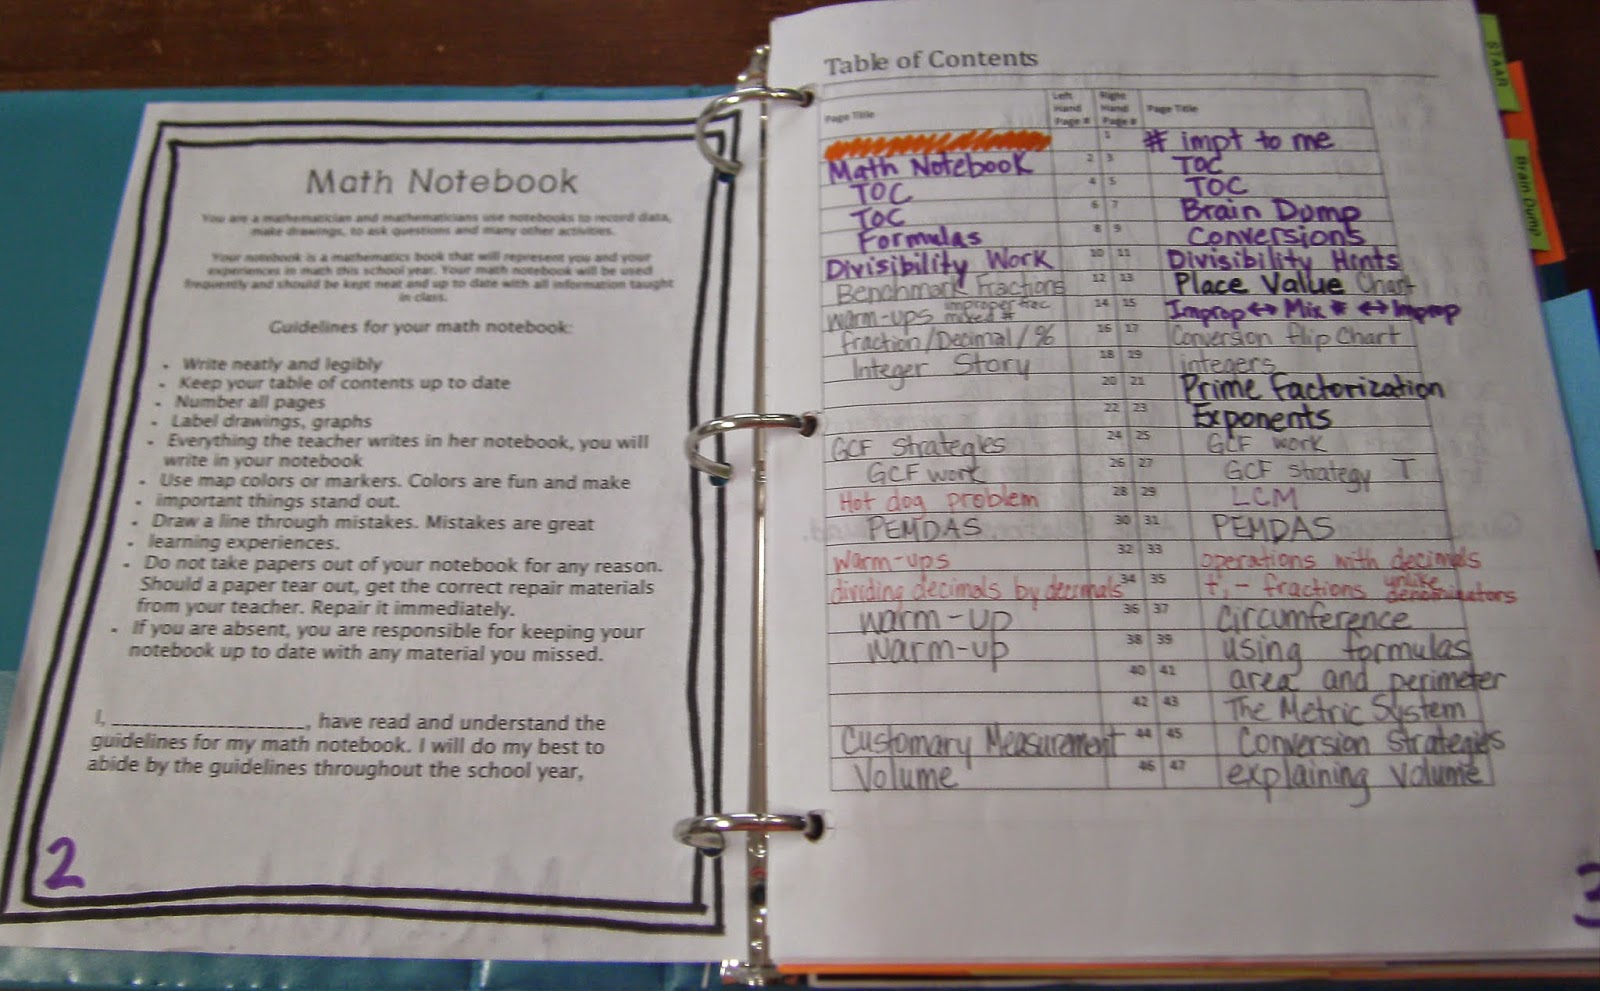 Math Notebook
You are a mathematician and mathematicians use notebooks to record data,
make drawings, to ask questions and many other activities.
Your notebook is a mathematics book that will represent you and your
experiences in math this school year. Your math notebook will be used
frequently and should be kept neat and up to date with all information taught
in class.
Guidelines for your math notebook:
- Write neatly and legibly
- Keep your table of contents up to date
- Number all pages
- Label drawings, graphs
- Everything the teacher writes in her notebook, you will
write in your notebook
- Use map colors or markers. Colors are fun and make
- important things stand out.
- Draw a line through mistakes. Mistakes are great
- learning experiences.
- Do not take papers out of your notebook for any reason.
Should a paper tear out, get the correct repair materials
from your teacher. Repair it immediately.
- If you are absent, you are responsible for keeping your
notebook up to date with any material you missed.
I, ____________________, have read and understand the
guidelines for my math notebook. I will do my best to
abide by the guidelines throughout the school year,
2
Table of Contents
Page Title Left Hand Page # Right Hand Page # Page Title
1 # impt to me
Math Notebook 2 3 TOC
TOC 4 5 TOC
TOC 6 7 Brain Dump
Formulas 8 9 Conversions
Divisibility Work 10 11 Divisibility Hints
Benchmark Fractions 12 13 Place Value Chart
warm-ups improper frac mixed # 14 15 Improp ↔ Mix # ↔ Improp
fraction/Decimal/% 16 17 Conversion flip Chart
Integer Story 18 19 integers
20 21 Prime Factorization
22 23 Exponents
GCF Strategies 24 25 GCF work
GCF work 26 27 GCF Strategy T
Hot dog problem 28 29 LCM
PEMDAS 30 31 PEMDAS
warm-ups 32 33 operations with decimals
dividing decimals by decimals 34 35 +, - fractions unlike denominators
warm-up 36 37 Circumference
warm-up 38 39 using formulas
40 41 area and perimeter
42 43 The Metric System
Customary Measurement 44 45 Conversion Strategies
Volume 46 47 explaining volume
3
STAAR
Brain Dump